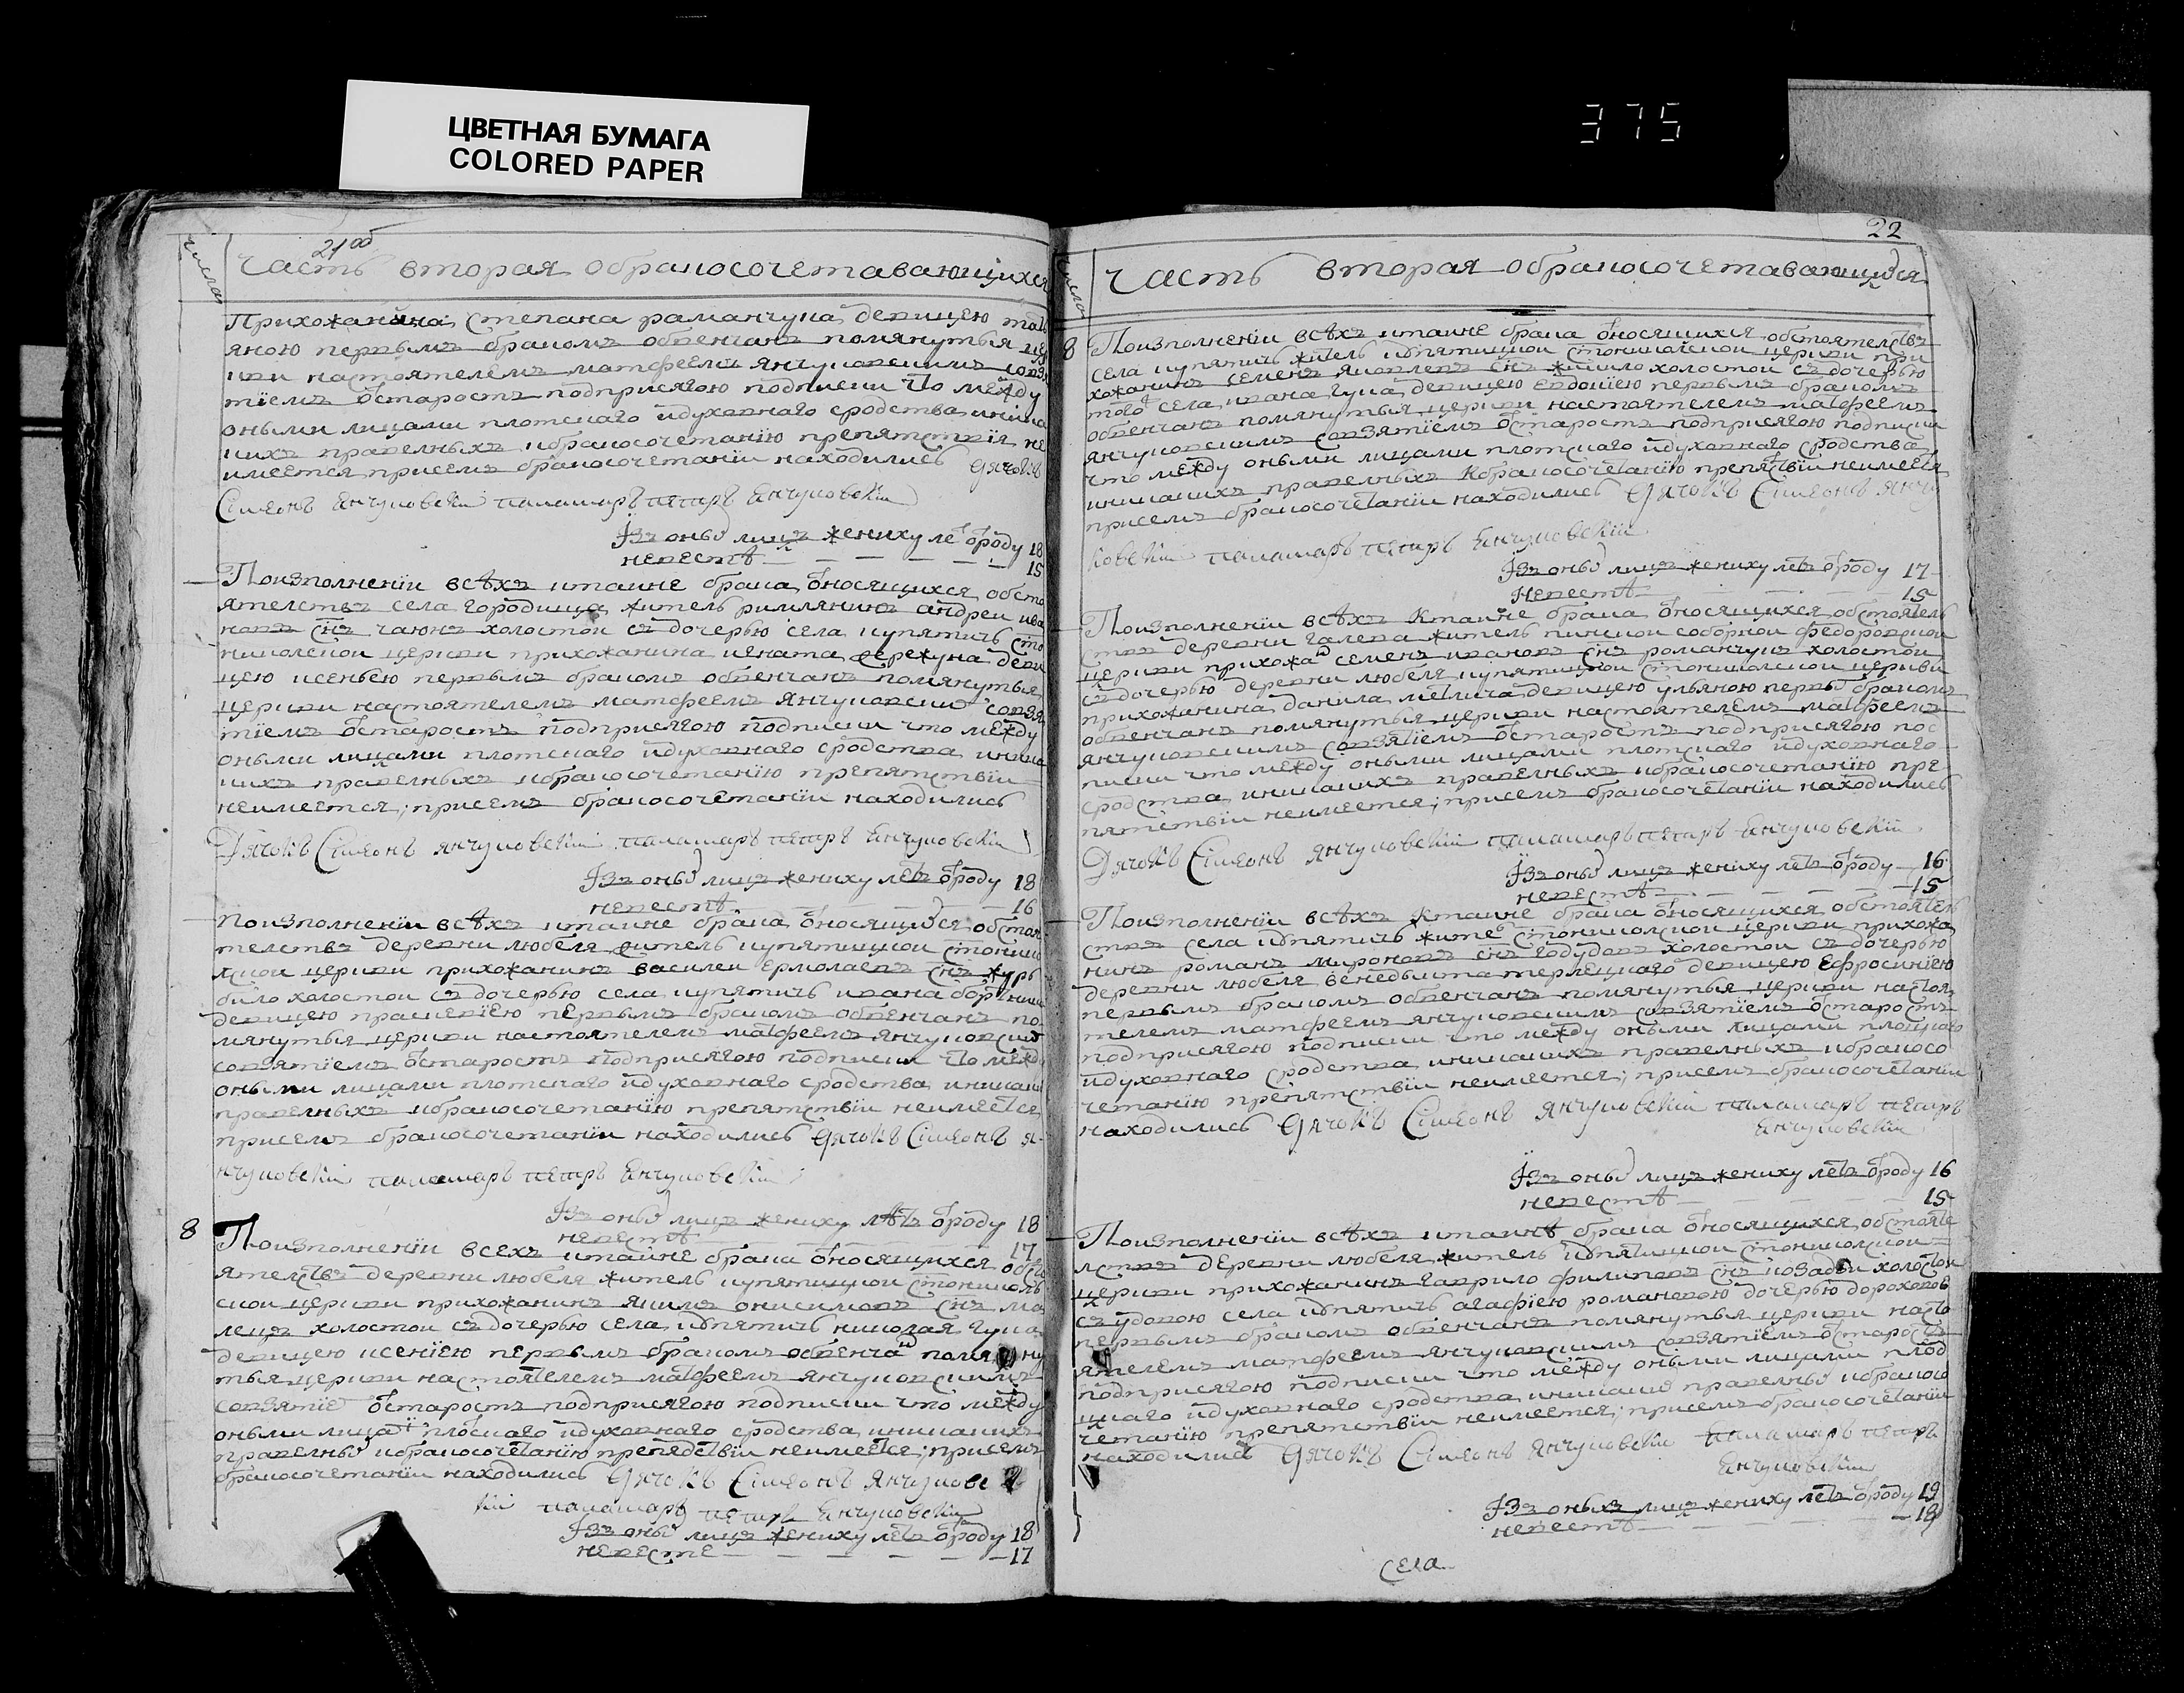 ЦВЕТНАЯ БУМАГА
COLORED PAPER
375
21 об
числа
Часть вторая обракосочетавающихся
Прихожанина степана раманчука девицею тать
яною первымъ бракомъ обвенчанъ помянутыя це
ркви настоятелемъ матфеемъ янчуковскимъ совзя
тіемъ отстаростъ подприсягою подписки что между
оными лицами плотскаго идуховнаго сродства иника
кихъ правелныхъ кбракосочетанію препятствія не
имеется присемъ бракосочетаніи находились Дячокъ
Сімеонъ Янчуковскій паламаръ петръ Янчуковскій
Изъ оных лицъ жениху ле отроду 18
невестѣ 15
Поизполненіи всѣхъ ктаине брака относящихся обсто
ятелствъ села городища житель римлянинъ андреи ива
новъ снъ чаюнъ холостои съ дочерью села купятичъ сто
николской церкви прихожанина игната сережуна деви
цею ксеньею первымъ бракомъ обвенчанъ помянутыя
церкви настоятелемъ матфеемъ янчуковским совзя
тіемъ отстаростъ подприсягою подписки что между
оными лицами плотскаго идуховнаго сродства иника
кихъ правелныхъ кбракосочетанію препятствіи
неимеется; присемъ бракосочетаніи находились
Дячокъ Сімеонъ янчуковскій паламаръ петръ Янчуковскій
Изъ оных лицъ жениху летъ отроду 18
невестѣ 16
Поизполненіи всѣхъ ктаине брака относящихся обстоя
телствъ деревни любеля житель купятицкои стонико
лской церкви прихожанинъ василеи ермолаевъ снъ журь
било холостои съ дочерью села купятичъ ивана
девицею праскевіею первымъ бракомъ обвенчанъ по
мянутыя церкви настоятелемъ матфеемъ янчуковским
совзятіемъ отстаростъ подприсягою подписки что между
оными лицами плотскаго идуховнаго сродства иникаких
правелныхъ кбракосочетанію препятствіи неимеется
присемъ бракосочетаніи находились Дячокъ Сімеонъ я-
нчуковскій паламаръ петръ Янчуковскій
Изъ оных лицъ жениху лѣтъ отроду 18
невестѣ 17
8 Поизполненіи всехъ ктаине брака относящихся обсто
ятелствъ деревни любеля житель купятицкои стониколь
скои церкви прихожанинъ якимъ онисимовъ снъ ма
лецъ холостои съ дочерью села купятичъ николая гука
девицею ксеніею первымъ бракомъ обвенчанъ помяну
тыя церкви настоятелемъ матфеемъ янчуковскимъ
совзятіе отстаростъ подприсягою подписки что между
оными лицами плоскаго идуховнаго сродства иникакихъ
правелных кбракосочетанію препядствіи неимеется; присемъ
бракосочетаніи находились Дячокъ Сімеонъ Янчуковс
кій паламаръ петръ Янчуковскій
Изъ оных лицъ жениху летъ отроду 18
невесте 17
22
числа
Часть вторая обракосочетавающихся
8 Поизполненіи всѣхъ ктаине брака относящихся обстоятелствъ
села купятичъ житель купятицкои стониколской церкви при
хожанинъ семенъ яковлевъ снъ холостои съ дочерью
того села ивана гука девицею евдокіею первымъ бракомъ
обвенчанъ помянутыя церкви настоятелемъ матфеемъ
янчуковскимъ совзятіемъ отстаростъ подприсягою подписки
что между оными лицами плотскаго идуховнаго сродства
иникакихъ правелныхъ кбракосочетанію препятствіи неимеется
присемъ бракосочетаніи находились Дячокъ Сімеонъ Янчу
ковскій паламаръ петръ Янчуковскій
Изъ оных лицъ жениху летъ отроду 17
невестѣ 15
Поизполненіи всѣхъ ктаине брака относящихся обстоятель
ствъ деревни галева житель пинскои соборнои федоровскои
церкви прихожан семенъ ивановъ снъ романчукъ холостои
съ дочерью деревни любеля купятицкои стониколской церкви
прихожанина данила девицею ульяною первы бракомъ
обвенчанъ помянутыя церкви настоятелемъ матфеемъ
янчуковскимъ совзятіемъ отстаростъ подприсягою под
писки что между оными лицами плотскаго идуховнаго
сродства иникакихъ правелныхъ кбракосочетанію пре
пятствіи неимеется; присемъ бракосочетаніи находились
Дячокъ Сімеонъ Янчуковскій паламаръ петръ Янчуковскій
Изъ оных лицъ жениху летъ отроду 16
невестѣ 15
Поизполненіи всѣхъ ктаине брака относящихся обстоятель
ствъ села купятичъ жите стониколской церкви прихожа
нинъ романъ мироновъ снъ годудовъ холостои съ дочерью
деревни любеля венедыкта терлецкаго девицею Ефросиніею
первымъ бракомъ обвенчанъ помянутыя церкви настоя
телемъ матфеемъ янчуковскимъ совзятіемъ отстаростъ
подприсягою подписки что между оными лицами плоцкаго
идуховнаго сродства иникакихъ правелныхъ кбракосо
четанію препятствіи неимеется; присемъ бракосочетаніи
находились Дячокъ Сімеонъ Янчуковскій паламаръ петръ
Янчуковскій
Изъ оных лицъ жениху летъ отроду 16
невестѣ 15
Поизполненіи всѣхъ ктаинѣ брака относящихся обстояте
лствъ деревни любеля житель купятицкои стониколской
церкви прихожанинъ гаврило филиповъ снъ холостои
съ удовою села купятичъ агафіею романовою дочерью
первымъ бракомъ обвенчанъ помянутыя церкви насто
ятелемъ матфеемъ янчуковскимъ совзятіемъ отстаростъ
подприсягою подписки что между оными лицами плод
цкаго идуховнаго сродства иникаких правелных кбракосо
четанію препятствіи неимеется; присемъ бракосочетаніи
находились Дячокъ Сімеонъ Янчуковскій паламаръ петръ
Янчуковскій
Изъ оныхъ лицъ жениху летъ отроду 19
невестѣ 18
села